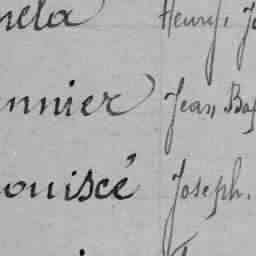 nela Henry, J
nnier Jean, Bap
ouiscé Joseph.